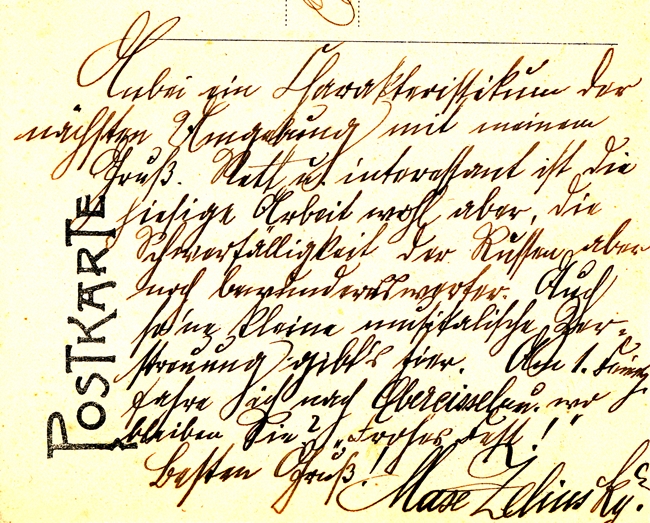 Anbei ein Charakteristikum der
nächsten Umgebung mit meinem
Gruß. Nett u. interessant ist die
hiesige Arbeit wohl aber, die
Schwerfälligkeit der Russen aber
noch bewundernswerter. Auch
so'ne kleine musikalische Zer-
streuung gibt's hier. Am 1. Feiertg.
fahre ich nach Obereisseln u. wo
bleiben Sie? „Frohes Fest!"
Besten Gruß!
Max Zelinsky.
POSTKARTE